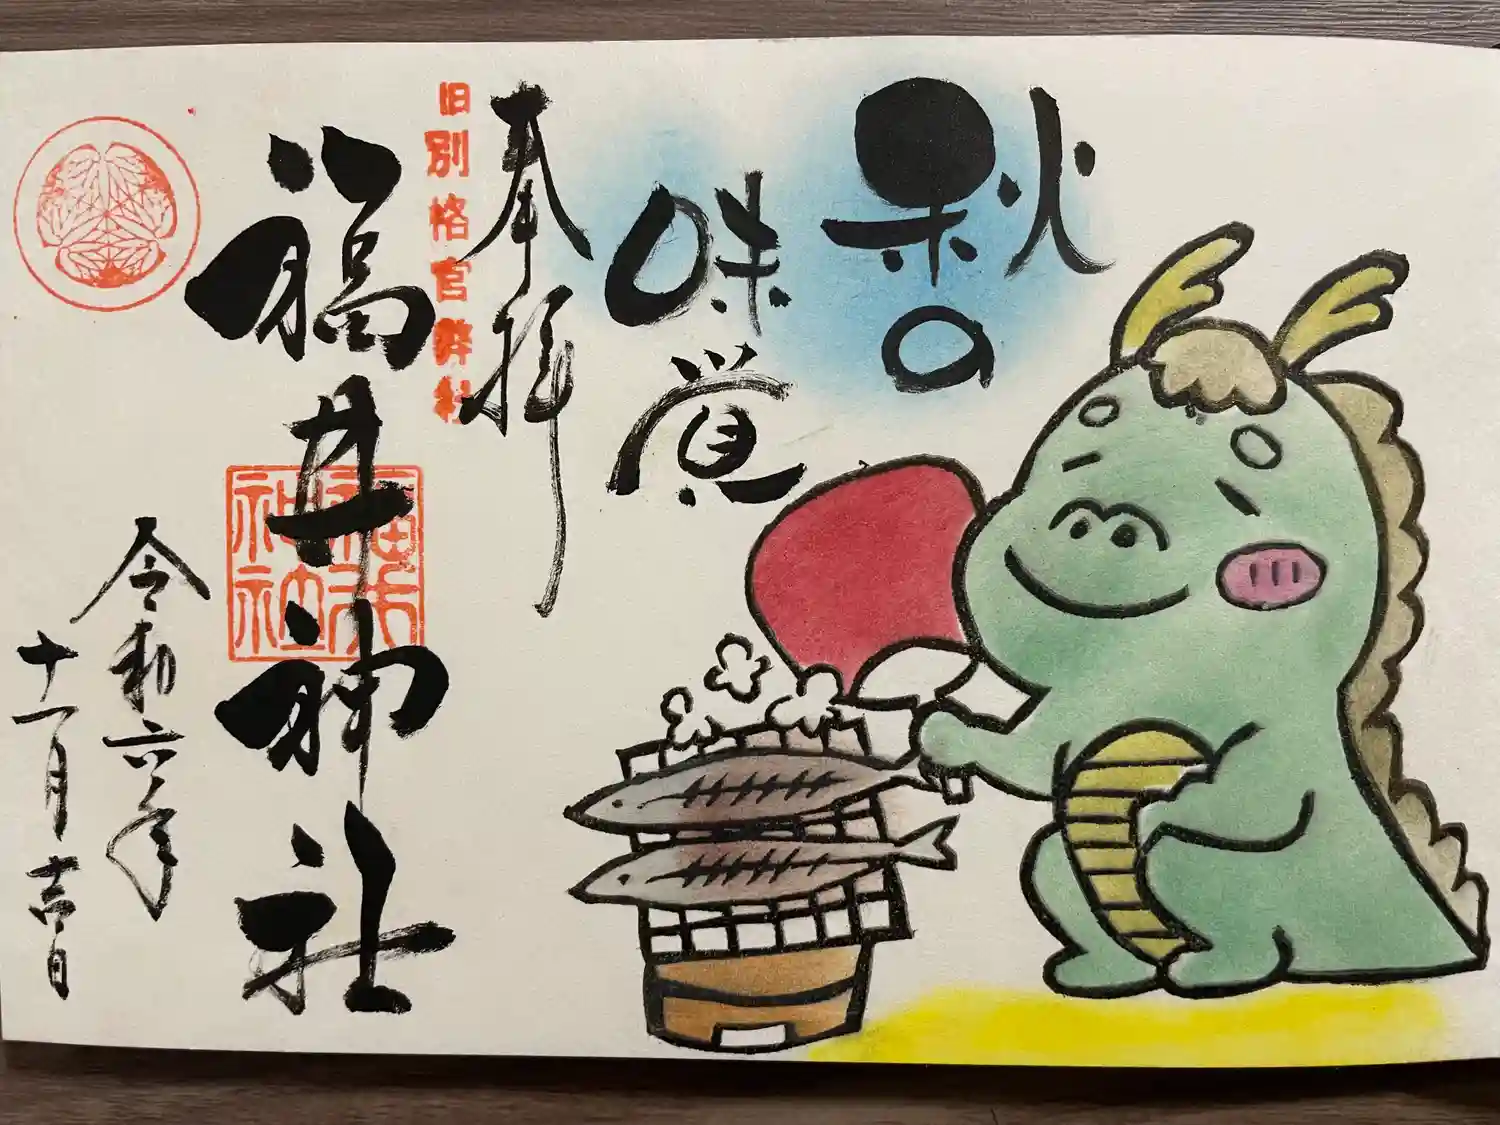 秋の
味覚
奉拝
旧別格官幣社
福井神社
福井
神社
令和六年
十一月吉日